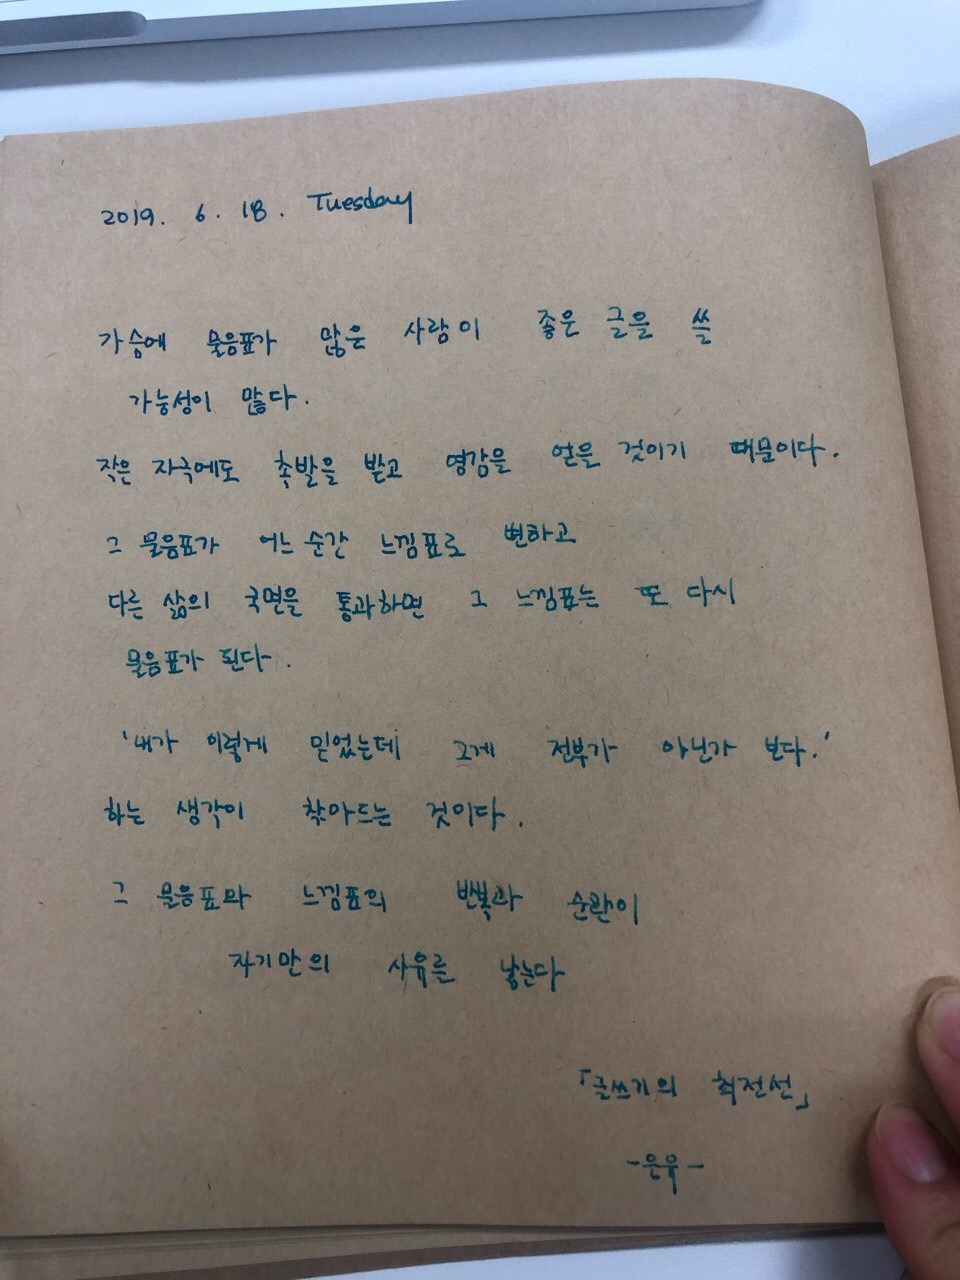 2019. 6. 18. Tuesday
가슴에 물음표가 많은 사람이 좋은 글을 쓸
가능성이 많다.
작은 자극에도 촉발을 받고 영감을 얻을 것이기 때문이다.
그 물음표가 어느 순간 느낌표로 변하고
다른 삶의 국면을 통과하면 그 느낌표는 또 다시
물음표가 된다.
'내가 이렇게 믿었는데 그게 전부가 아닌가 보다.'
하는 생각이 찾아드는 것이다.
그 물음표와 느낌표의 반복과 순환이
자기만의 사유를 낳는다
「글쓰기의 최전선」
-은유-